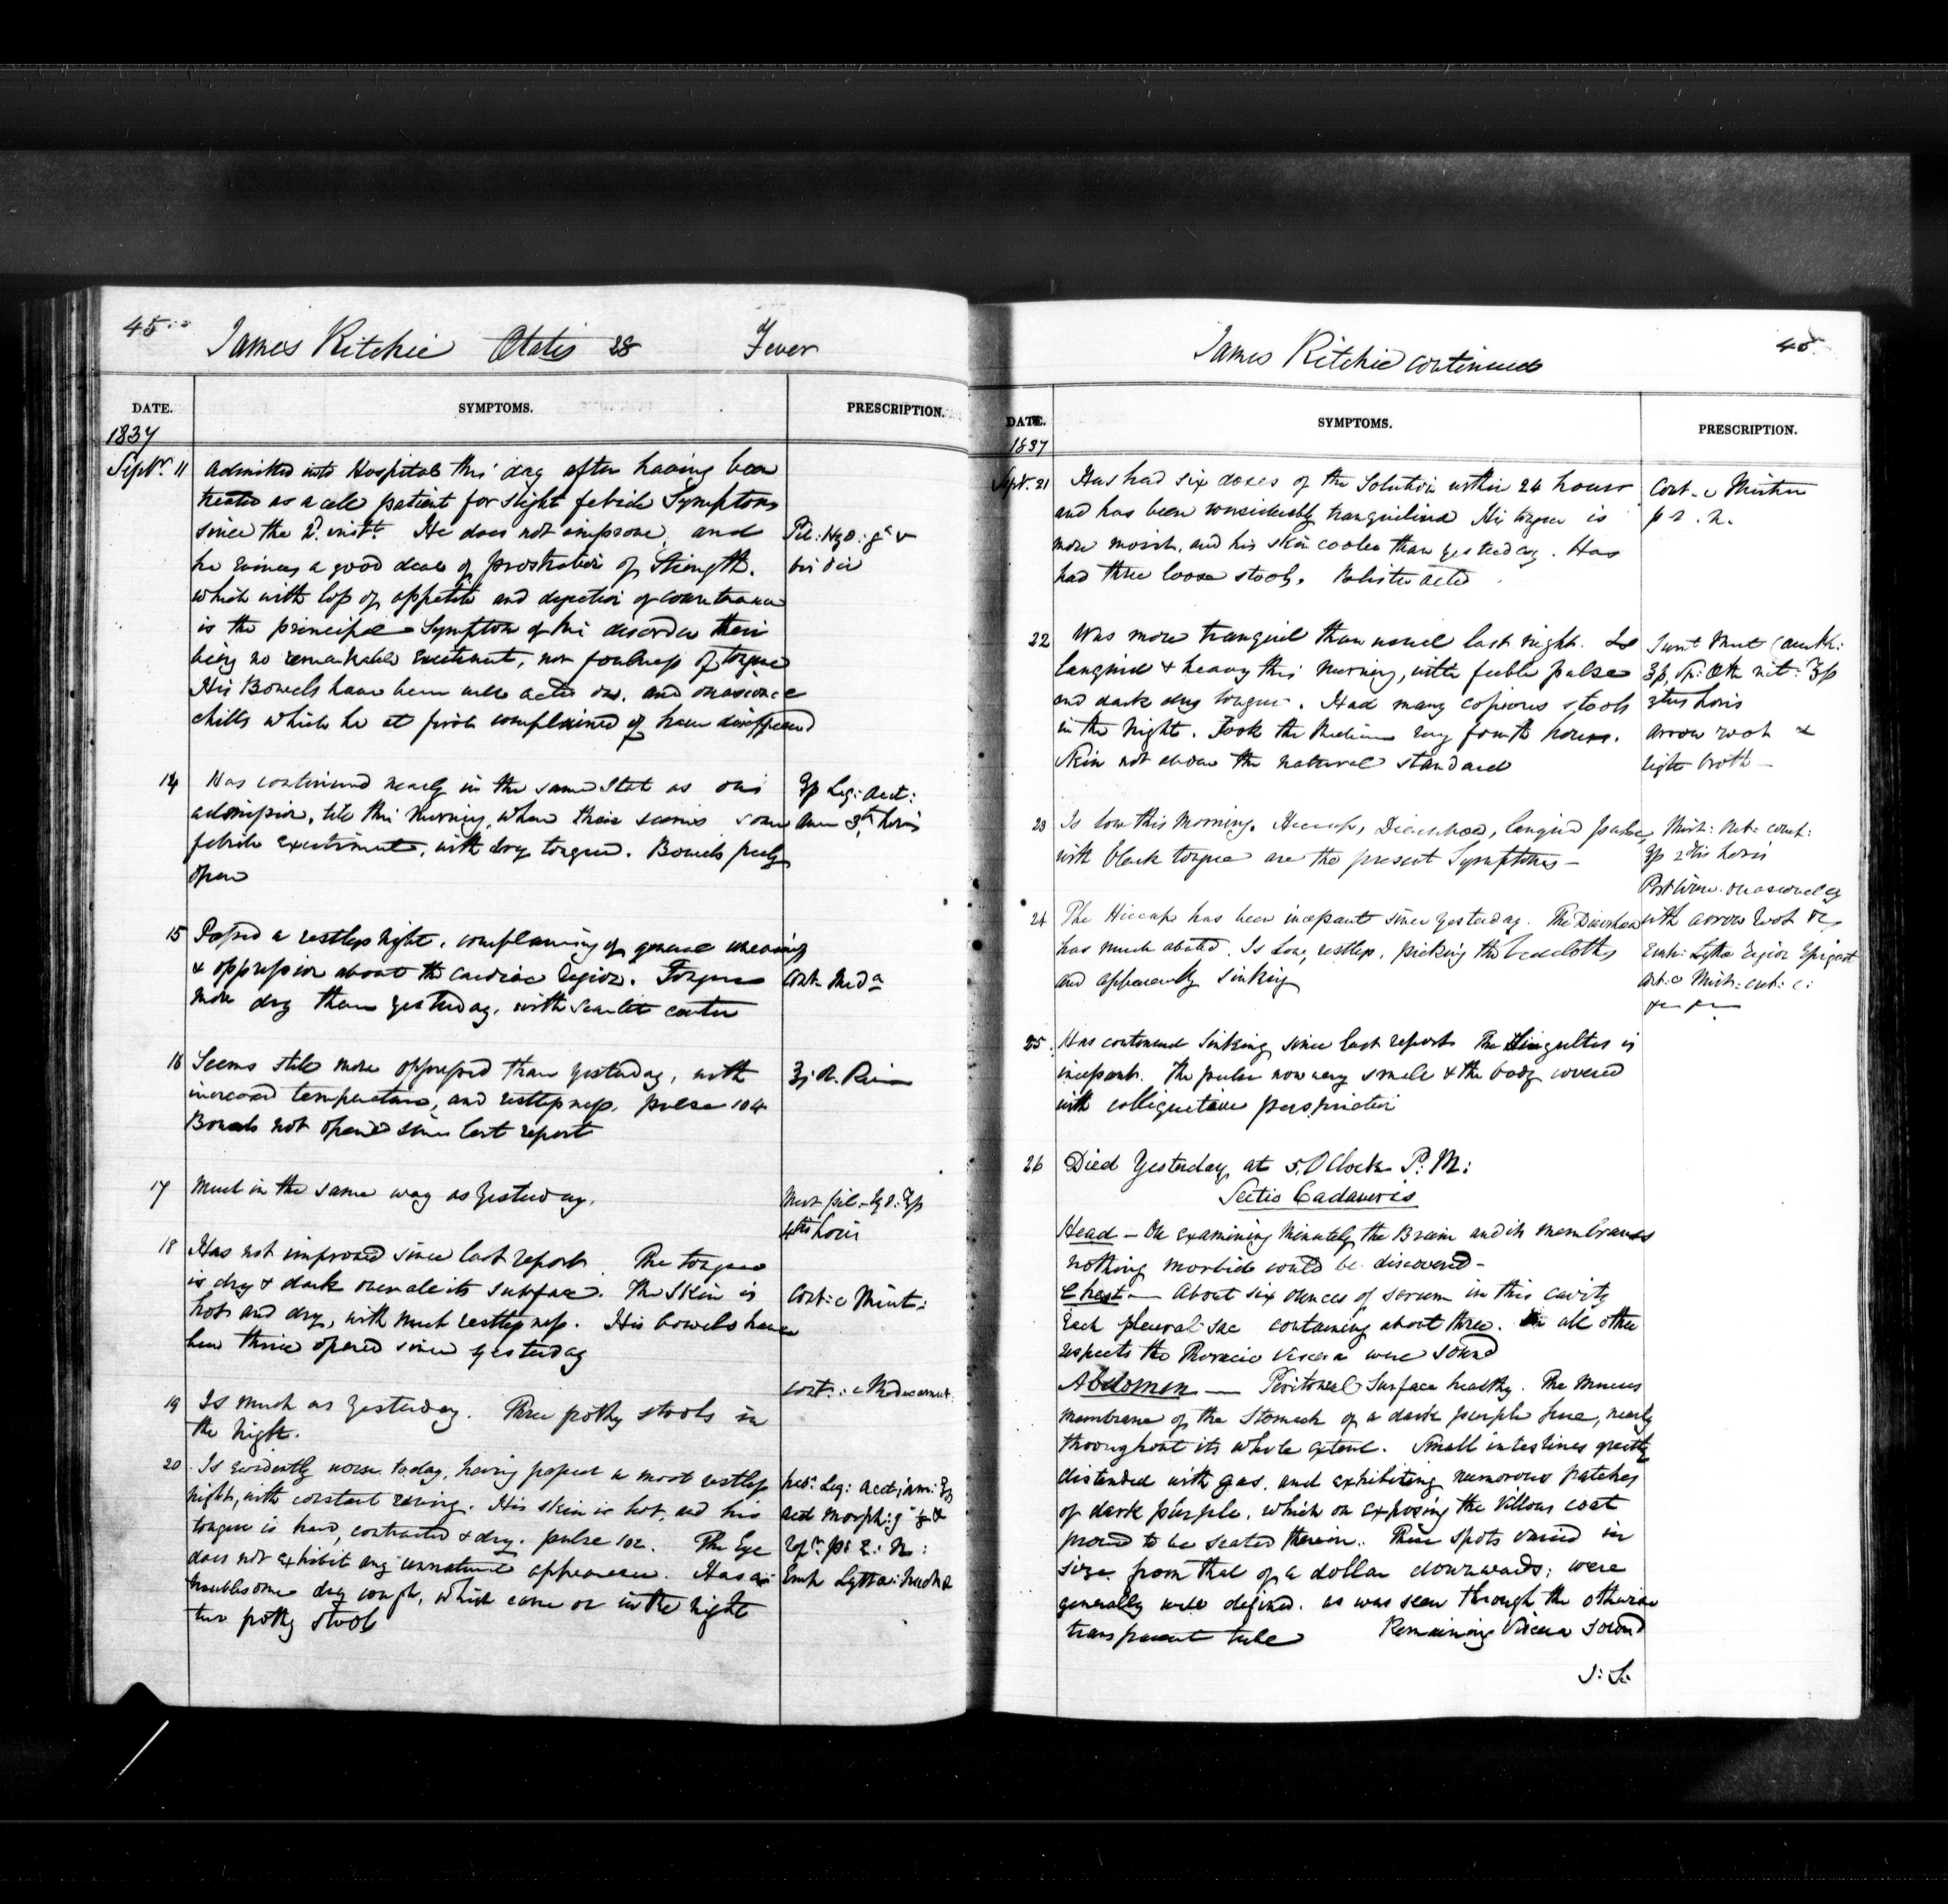 45
James Ritchie Ætatis 28 Fever
DATE. SYMPTOMS. PRESCRIPTION.
1837
Septr. 11 Admitted into Hospital this day after having been
treated as a patient for slight febrile Symptoms
since the 2d. inst. He does not improve, and
he evinces a good deal of prostration of Strength.
which with loss of appetite and dejection of countenance
is the principal Symptom of his disorder their
being no remarkable excitement, nor foulness of tongue
His Bowels have been well acted on. and occasional
chills which he at first complained of have disappeared
Pil: Hyd: gr v
bis die
14 Has continued nearly in the same State as on
admission, till this Morning, when their seems some
febrile excitement, with dry tongue. Bowels freely
open
Liq: Acet:
3tis horis
15 Passed a restless night, complaining of general uneasiness
& oppression about the cardiac region. Tongue
more dry than yesterday, with scarlet center
Cont. Meda
16 Seems still more oppressed than yesterday, with
increased temperature, and restlessness, pulse 104
Bowels not opened since last report
Ol. Ricin
17 Much in the same way as yesterday.
4tis horis
18 Has not improved since last report. The tongue
is dry & dark over all its surface. The Skin is
hot and dry, with much restlessness. His bowels have
been thrice opened since yesterday
Cont: c Mist:
19 Is much as yesterday. Three pothy stools in
the night.
Cont: c Medicament:
20 Is evidently worse today, having passed a most restless
night, with constant raving. His skin is hot, and his
tongue is hard, contracted & dry. pulse 102. The Eye
does not exhibit any unnatural appearance. Has a
troublesome dry cough, which came on in the night
two pothy stools
Liq: Acet: Am:
Acet Morph: g
p: r: n:
Emp Lytta: Nucha
James Ritchie continued 45
DATE. SYMPTOMS. PRESCRIPTION.
1837
Septr. 21 Has had six doses of the Solution within 24 hours
and has been considerably tranquilized His tongue is
more moist, and his skin cooler than yesterday. Has
had three loose stools. Blister acted
Cont. c Mistur
p r. n.
22 Was more tranquil than usual last night. Is
languid & heavy this Morning, with feeble pulse
and dark dry tongue. Had many copious stools
in the Night. Took the Medicine every fourth hour.
Skin not above the natural standard
3tiis horis
arrow root &
light broth
23 Is low this Morning. Hiccup, Diarrhoea, languid pulse,
with black tongue are the present Symptoms
Mist: cont:
2dis horis
Port Wine occasionally
with arrow root &c
24 The Hiccup has been incessant since yesterday. The Diarrhoea
has much abated. Is low, restless, picking the bedcloths
and apparently sinking
Emp: Lytta Region Epigast
25 Has continued sinking since last report The Singultus is
incessant. The pulse now very small & the body covered
with colliquative perspiration
26 Died Yesterday at 5 OClock P: M:
Sectio Cadaveris
Head - On examining Minutely the Brain and its membranes
nothing morbid could be discovered -
Chest - About six ounces of serum in this cavity
Each pleural sac containing about three. In all other
respects the Thoracic viscera were sound
Abdomen - Peritoneal Surface healthy. The Mucus
membrane of the Stomach of a dark purple hue, nearly
throughout its whole extent. Small intestines greatly
distended with gas, and exhibiting numerous patches
of dark purple, which on exposing the Villous coat
proved to be seated therein. These spots varied in
size from that of a dollar downwards; were
generally well defined. as was seen through the otherwise
transparent tube Remaining Viscera sound
J: S: